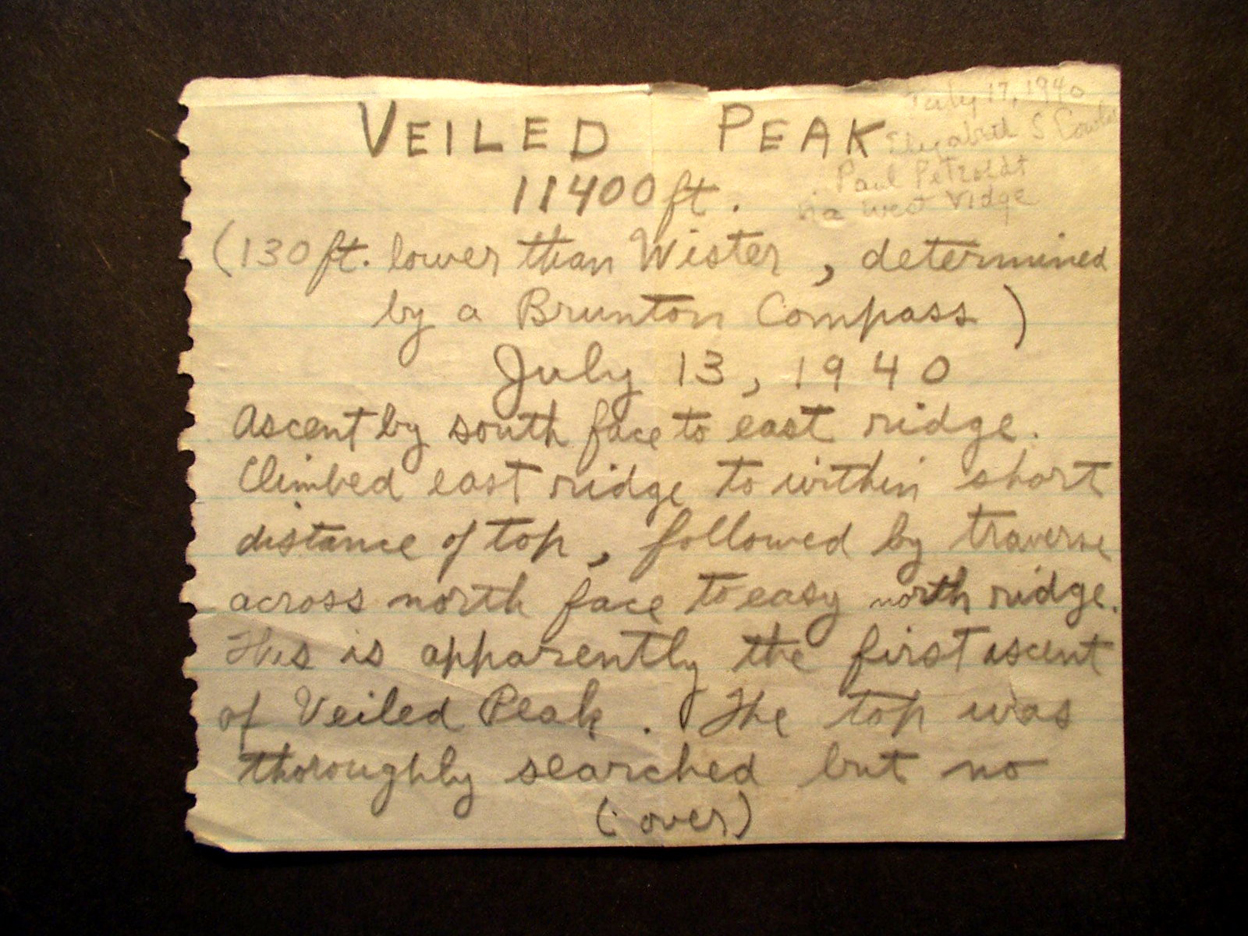 VEILED PEAK
11400 ft.
(130 ft. lower than Wister, determined
by a Brunton Compass)
July 13, 1940
Ascent by south face to east ridge.
Climbed east ridge to within short
distance of top, followed by traverse
across north face to easy north ridge.
This is apparently the first ascent
of Veiled Peak. The top was
thoroughly searched but no
(over)
July 17, 1940
Elizabeth S
Paul Petzoldt
via west ridge